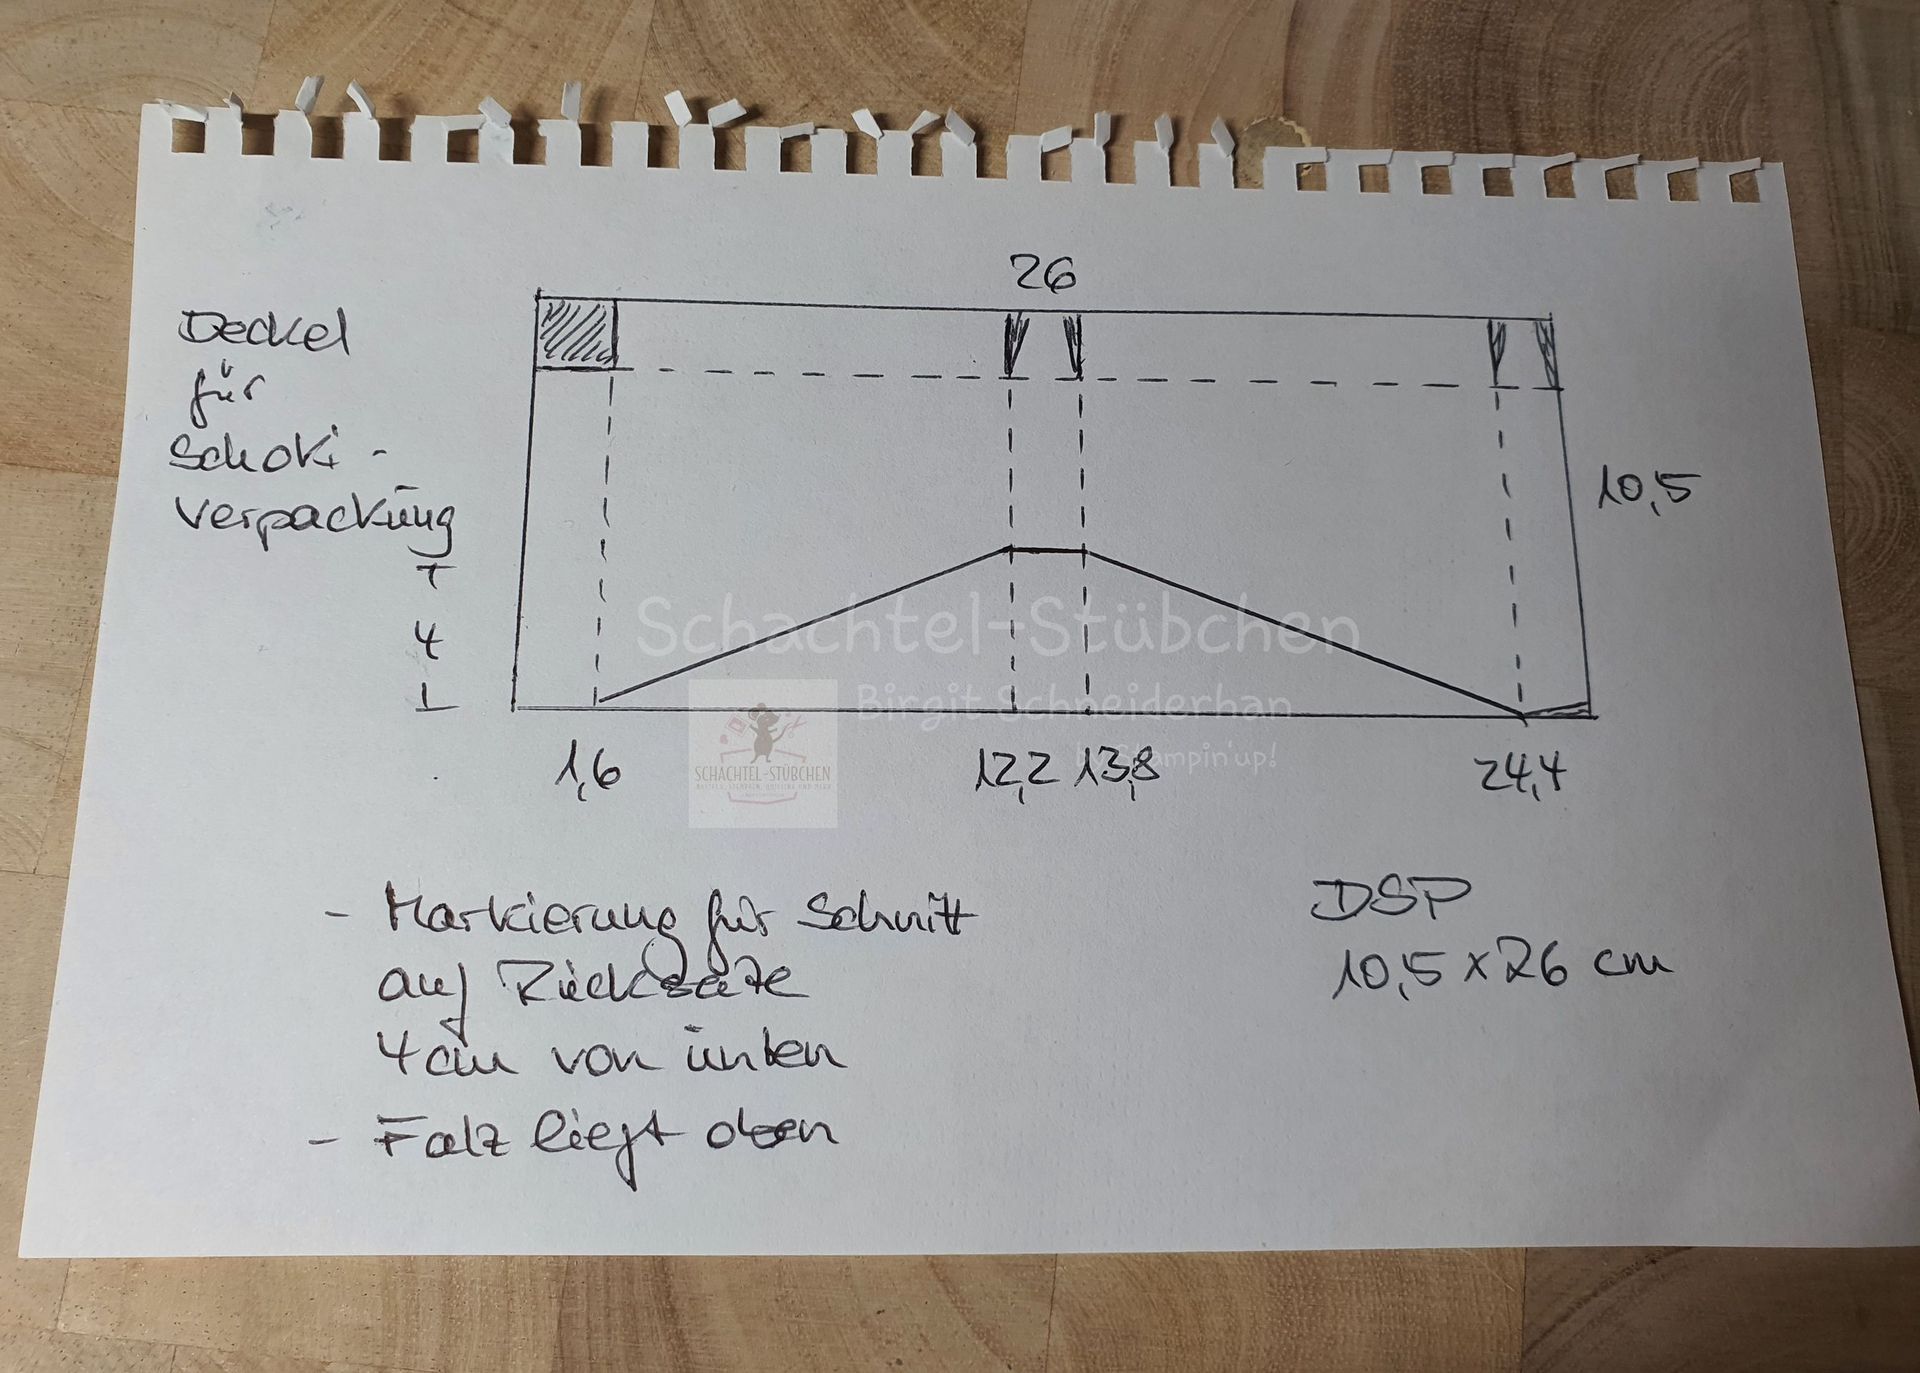 26
Deckel
für
Schoki-
verpackung
10,5
4
Schachtel-Stübchen
Birgit Schneiderhan
by Stampin'up!
SCHACHTEL-STÜBCHEN
1,6
12,2
13,8
24,4
- Markierung für Schnitt
auf Rückseite
4cm von unten
- Falz liegt oben
DSP
10,5 x 26 cm